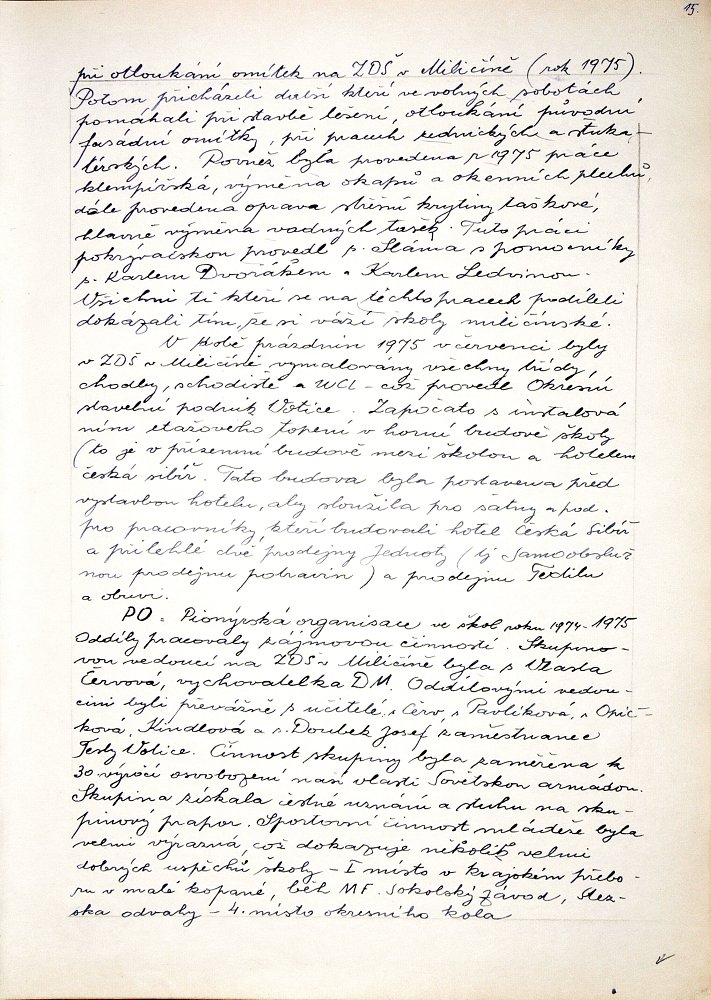 15.
při otloukání omítek na ZDŠ v Miličíně (rok 1975).
Potom přicházeli další kteří ve volných sobotách
pomáhali při stavbě lešení, otloukání původní
fasádní omítky, při pracech zednických a štuka-
térských. Rovněž byla provedena r 1975 práce
klempířská, výměna okapů a okenních plechů,
dále provedena oprava střešní krytiny taškové,
hlavně výměna vadných tašek. Tuto práci
pokrývačskou provedl s. Sláma s pomocníky
s. Karlem Dvořákem a Karlem Ledvinou.
Všichni ti kteří se na těchto pracech podíleli
dokázali tím, že si váží školy miličínské.
V době prázdnin 1975 v červenci byly
v ZDŠ v Miličíně vymalovány všechny třídy,
chodby, schodiště a WCl – což provedl Okresní
stavební podnik Votice. Započato s instalová
ním etažového topení v horní budově školy
(to je v přízemní budově mezi školou a hotelem
česká sibiř. Tato budova byla postavena před
výstavbou hotelu, aby sloužila pro šatny a pod.
pro pracovníky, kteří budovali hotel Česká Sibiř
a přilehlé dvě prodejny Jednoty (tj Samoobsluž
nou prodejnu potravin) a prodejnu Textilu
a obuvi.
PO. Pionýrská organisace ve škol. roku 1974-1975
Oddíly pracovaly zájmovou činností. Skupino-
vou vedoucí na ZDŠ v Miličíně byla s Vlasta
Červová, vychovatelka DM. Oddílovými vedou-
cími byli převážně s učitelé, s Červ, s Pavlíková, s Opič-
ková, Kindlová a s. Doubek Josef zaměstnanec
Tesly Votice. Činnost skupiny byla zaměřena k
30. výročí osvobození naší vlasti Sovětskou armádou.
Skupina získala čestné uznání a stuhu na sku-
pinový prapor. Sportovní činnost mládeže byla
velmi výrazná, což dokazuje několik velmi
dobrých úspěchů školy – I místo v krajském přebo-
ru v malé kopané, běh MF. Sokolský závod, Stez-
ska odvahy – 4. místo okresního kola